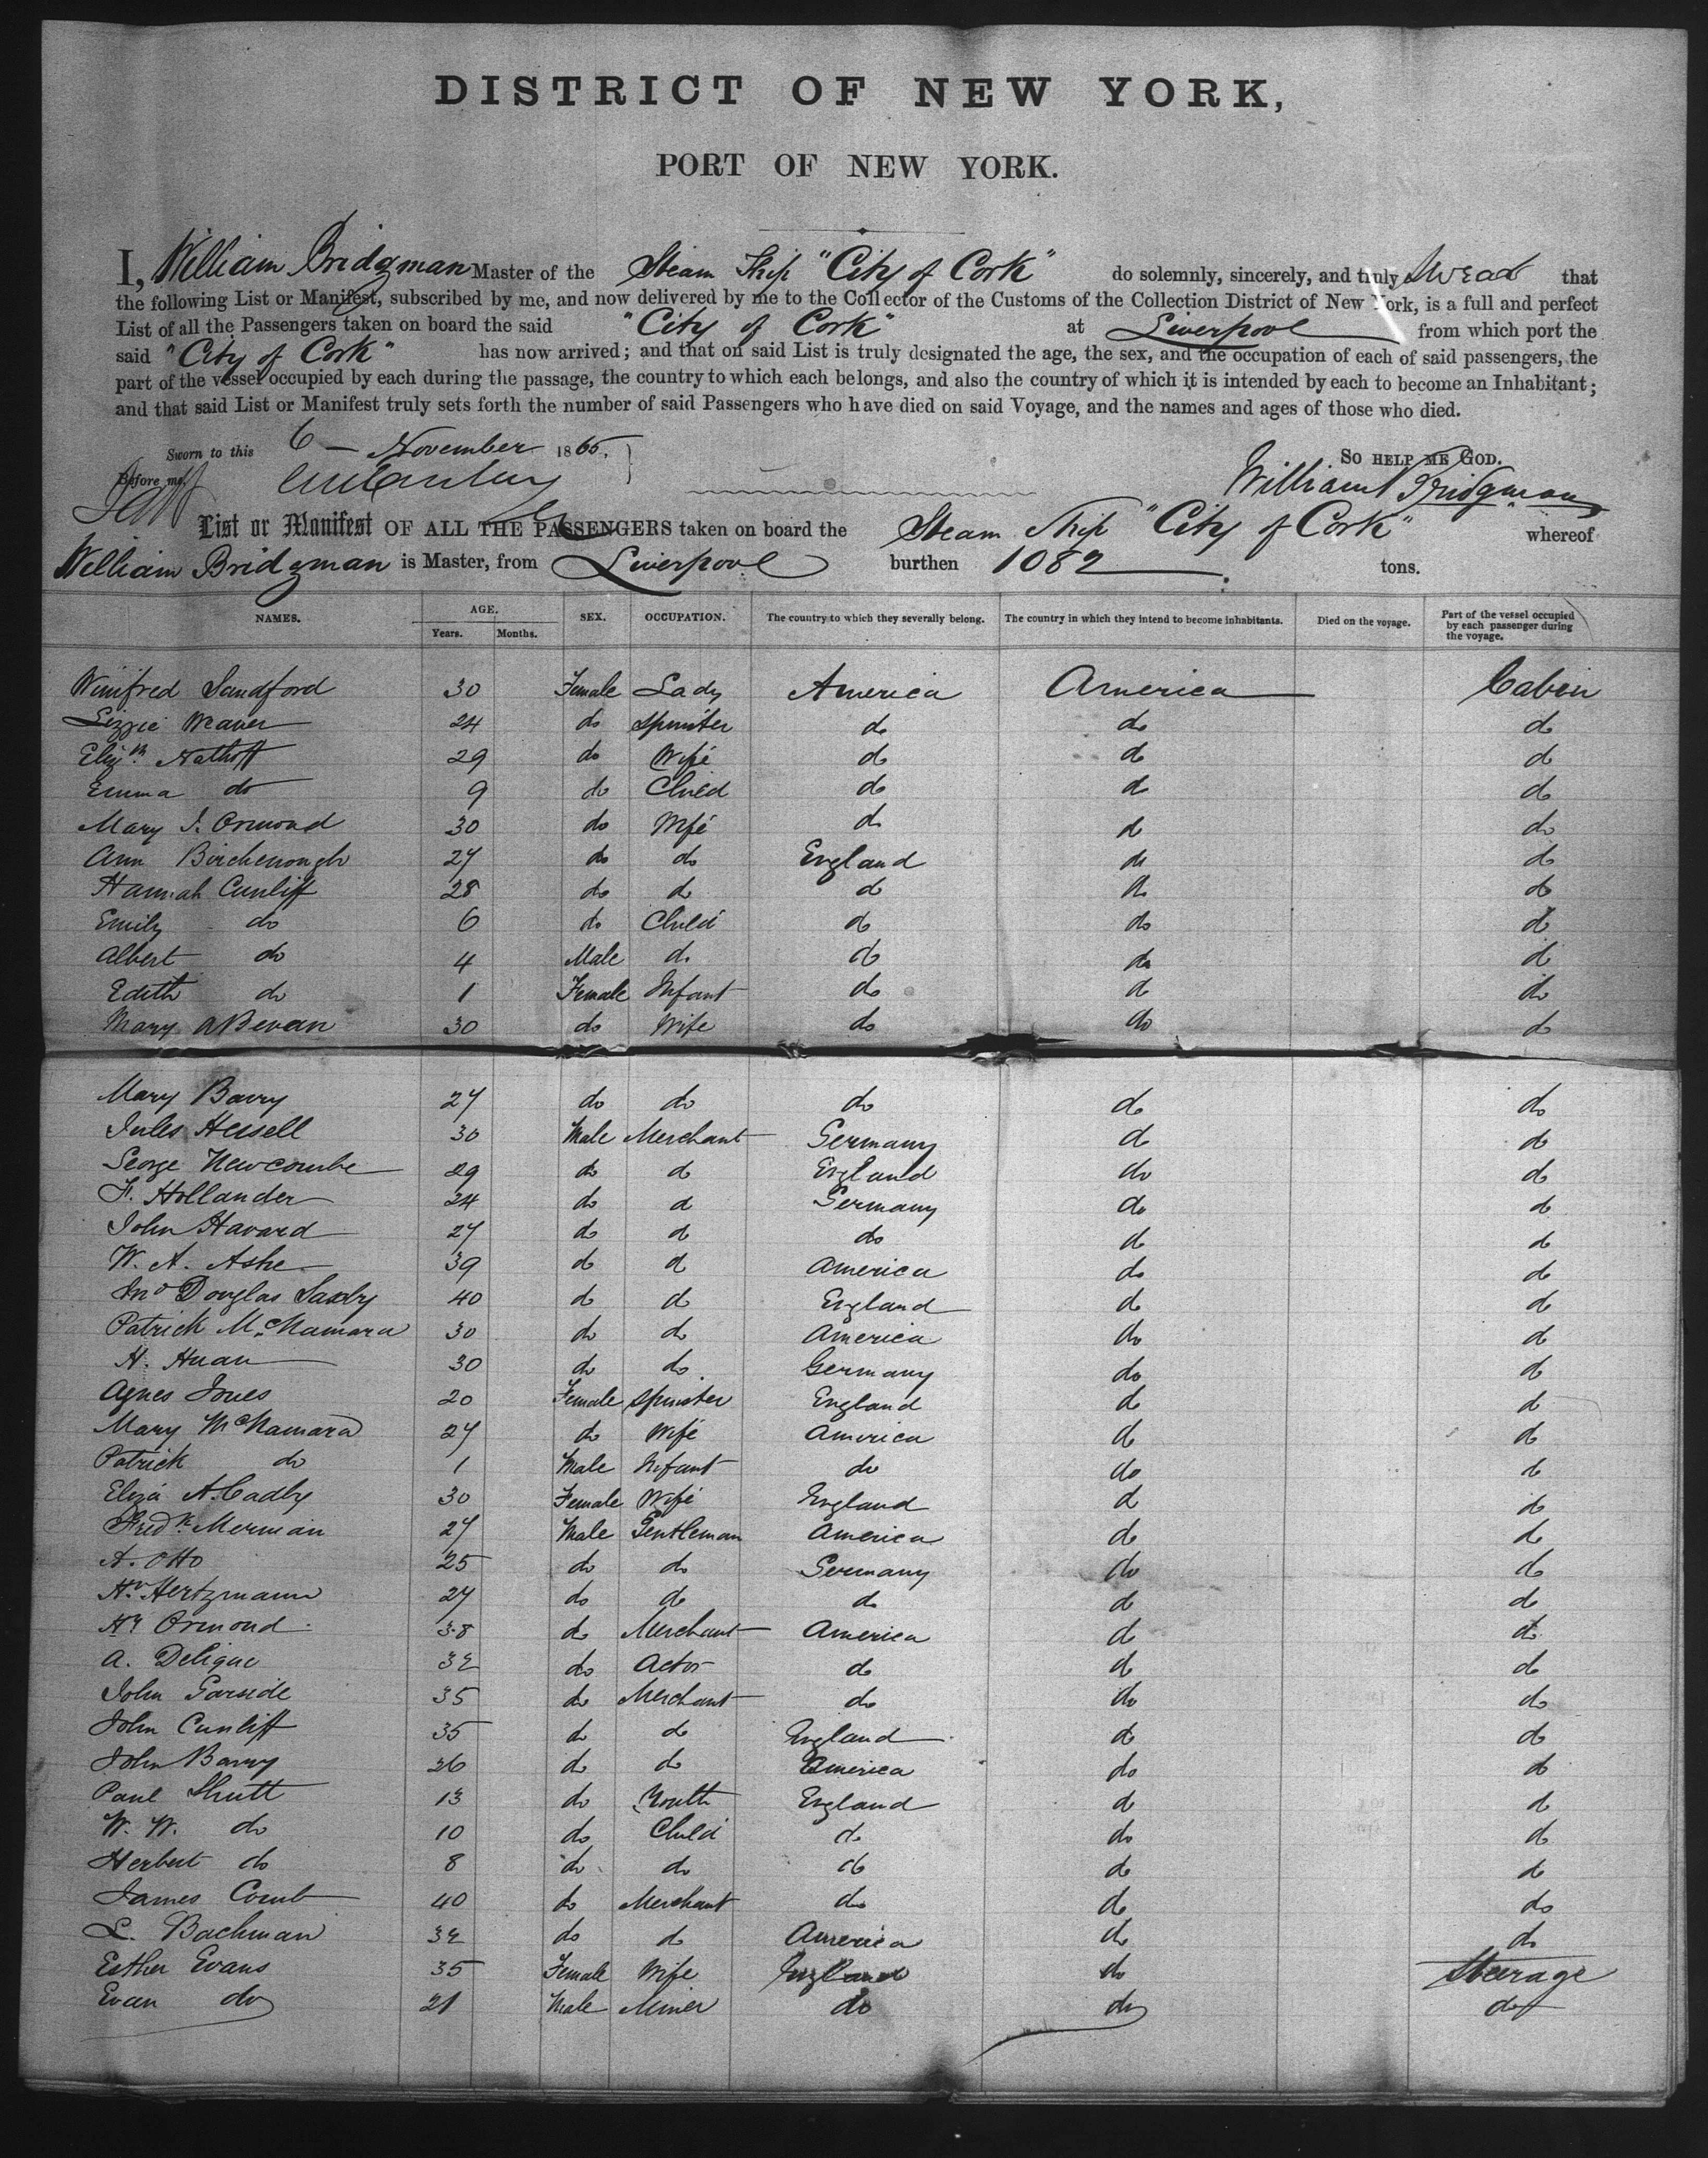 DISTRICT OF NEW YORK,
PORT OF NEW YORK.
I, William Bridgman Master of the Steam Ship "City of Cork" do solemnly, sincerely, and truly swear that
the following List or Manifest, subscribed by me, and now delivered by me to the Collector of the Customs of the Collection District of New York, is a full and perfect
List of all the Passengers taken on board the said "City of Cork" at Liverpool from which port the
said "City of Cork" has now arrived; and that on said List is truly designated the age, the sex, and the occupation of each of said passengers, the
part of the vessel occupied by each during the passage, the country to which each belongs, and also the country of which it is intended by each to become an Inhabitant;
and that said List or Manifest truly sets forth the number of said Passengers who have died on said Voyage, and the names and ages of those who died.
Sworn to this 6 November 1865,
So help me God.
Before me,
William Bridgman
List or Manifest OF ALL THE PASSENGERS taken on board the Steam Ship "City of Cork" whereof
William Bridgman is Master, from Liverpool burthen 1082 tons.
NAMES. AGE. Years. Months. SEX. OCCUPATION. The country to which they severally belong. The country in which they intend to become inhabitants. Died on the voyage. Part of the vessel occupied by each passenger during the voyage.
Winifred Sandford 30 Female Lady America America Cabin
Lizzie Weaver 24 do Spinster do do do
Elizth 29 do Wife do do do
Emma do 9 do Child do do do
Mary J. Ormond 30 do Wife do do do
Ann Birchenough 27 do do England do do
Hannah Cunliff 28 do do do do do
Emily do 6 do Child do do do
Albert do 4 Male do do do do
Edith do 1 Female Infant do do do
Mary A Bevan 30 do Wife do do do
Mary Barry 27 do do do do do
Jules Hersell 30 Male Merchant Germany do do
George Newcombe 29 do do England do do
F. Hollander 24 do do Germany do do
John Havard 27 do do do do do
W. A. Ashe 39 do do America do do
Jno Douglas Saxby 40 do do England do do
Patrick McNamara 30 do do America do do
H. Huan 30 do do Germany do do
Agnes Jones 20 Female Spinster England do do
Mary McNamara 27 do Wife America do do
Patrick do 1 Male Infant do do do
Eliza A. Cadby 30 Female Wife England do do
Fredk Merman 27 Male Gentleman America do do
A. Otto 25 do do Germany do do
Hy Hertzmann 27 do do do do do
Hy Ormond 38 do Merchant America do do
A. Deligue 32 do Actor do do do
John Garside 35 do Merchant do do do
John Cunliff 35 do do England do do
John Barry 26 do do America do do
Paul Shutt 13 do Youth England do do
W. W. do 10 do Child do do do
Herbert do 8 do do do do do
James Comb 40 do Merchant do do do
L. Bachman 32 do do America do do
Esther Evans 35 Female Wife England do Steerage
Evan do 21 Male Miner do do do